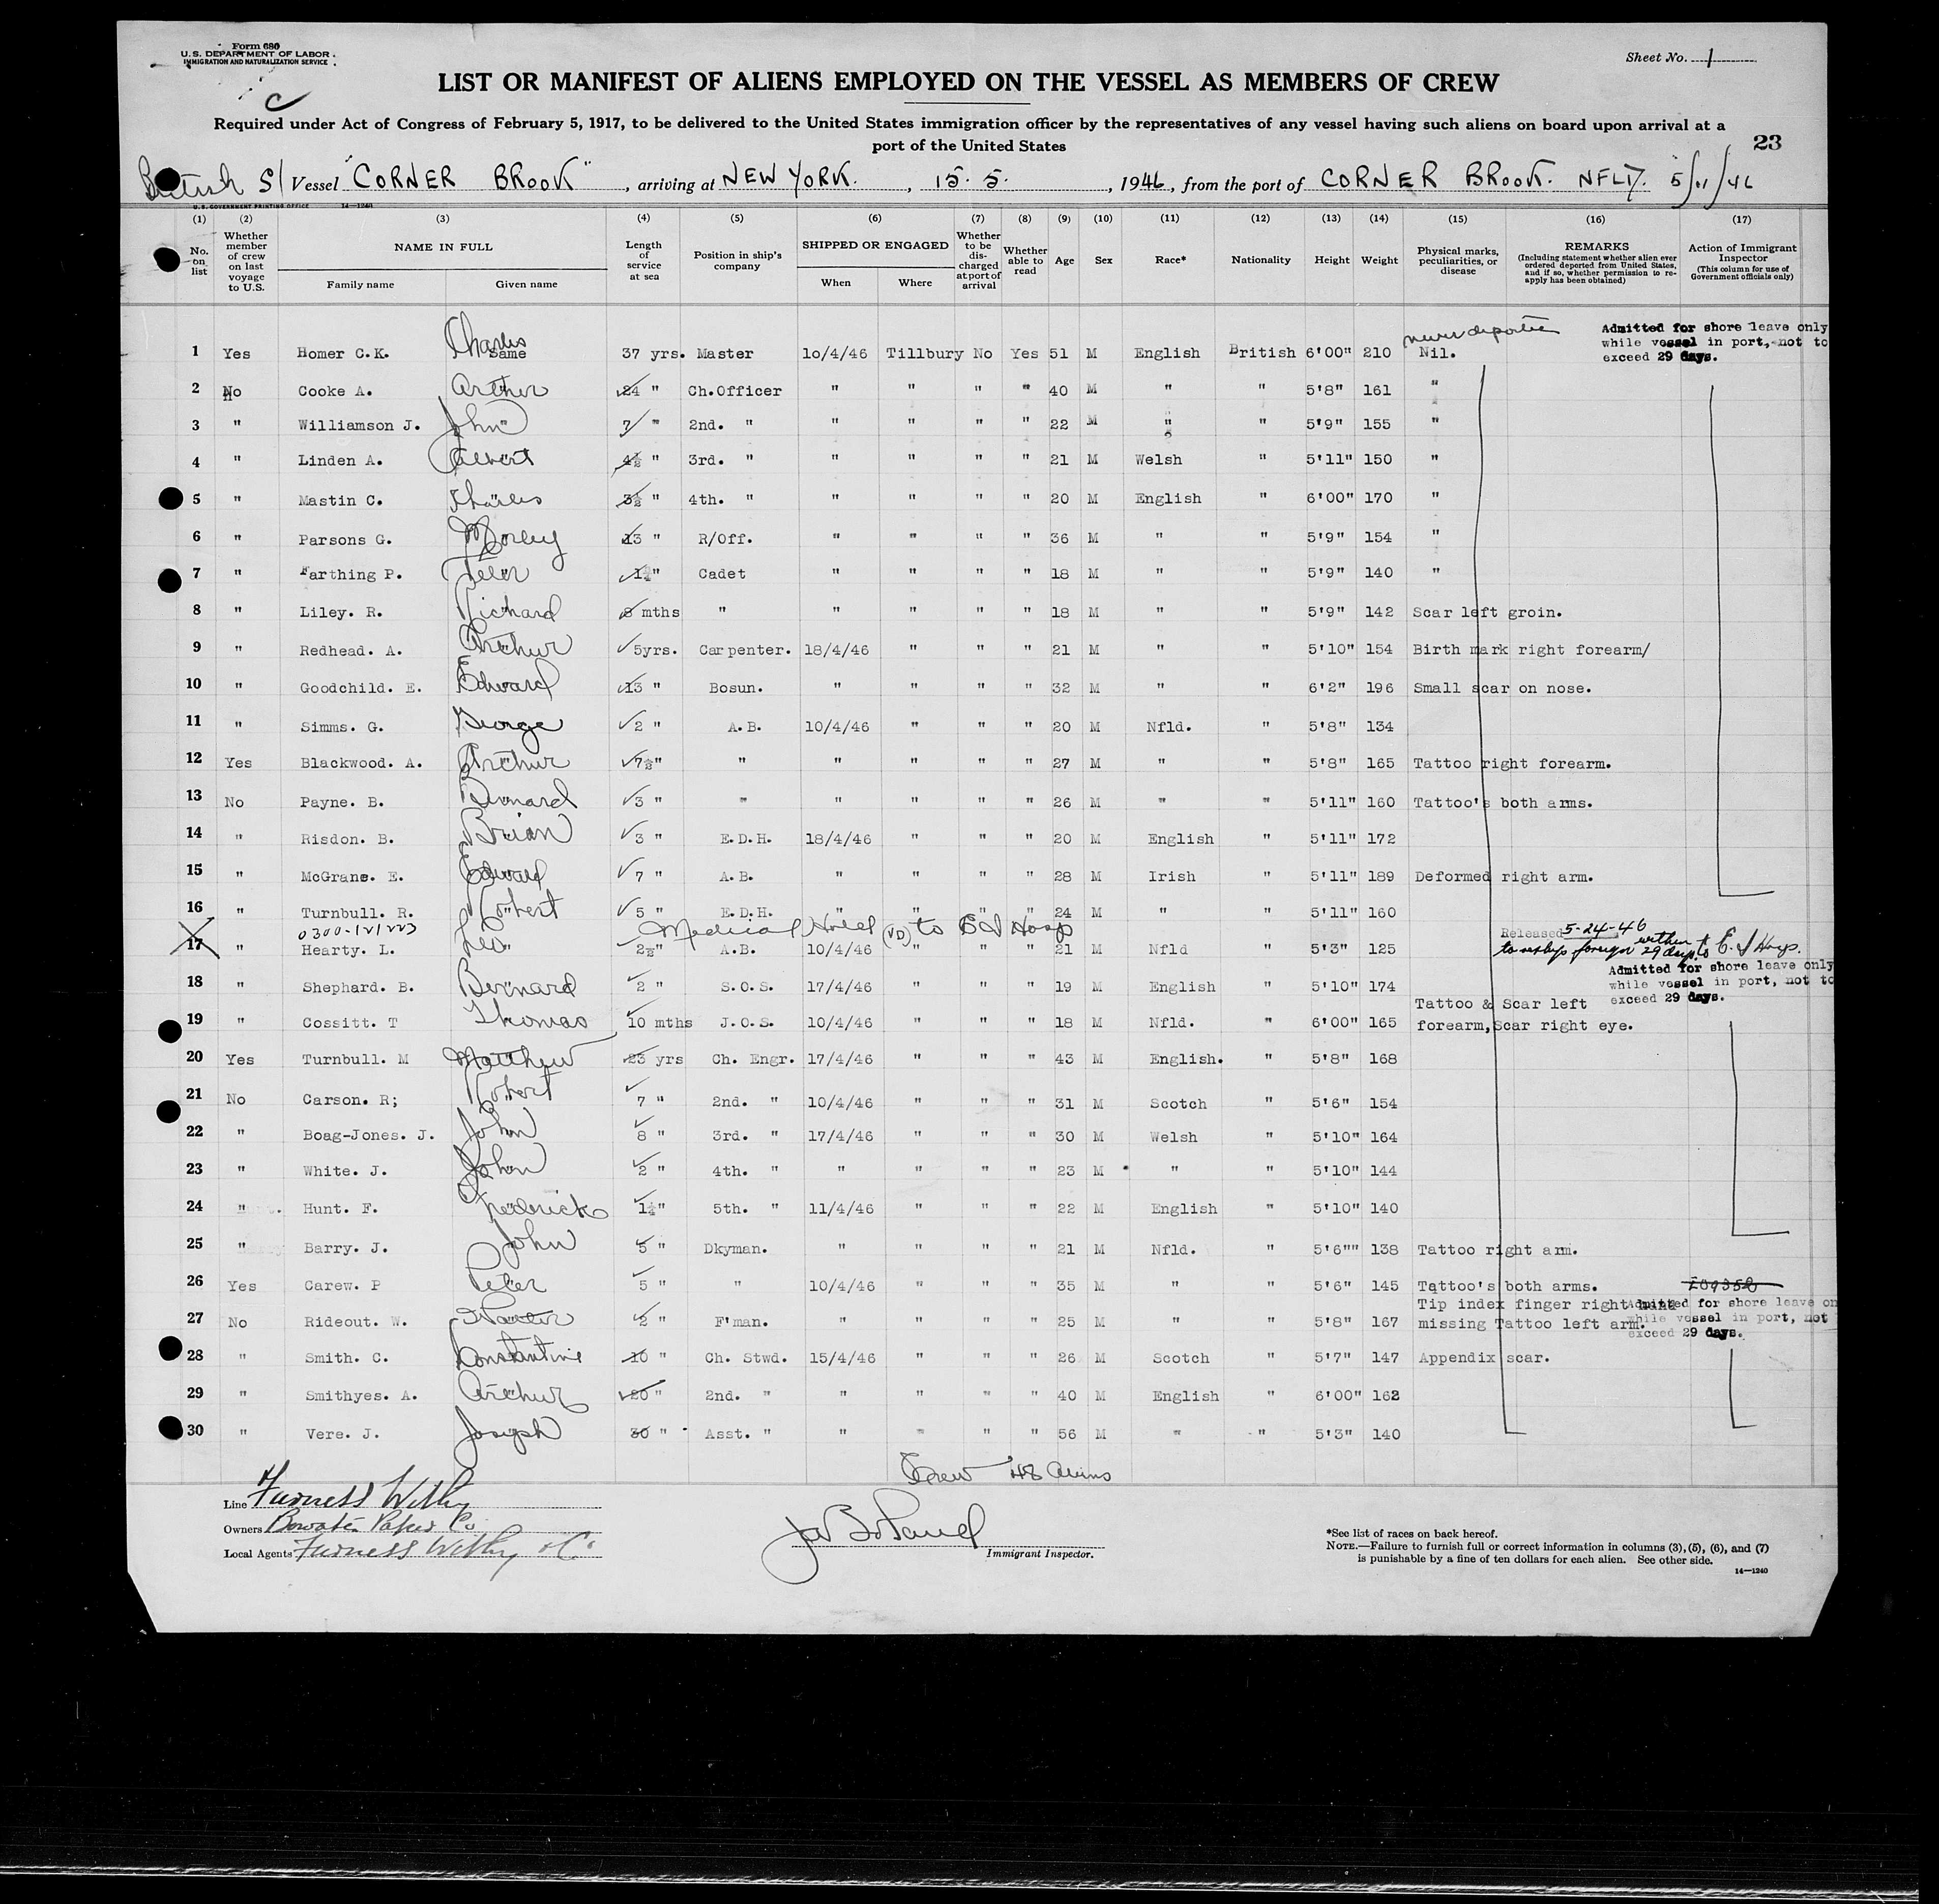 Form 680
U. S. DEPARTMENT OF LABOR
IMMIGRATION AND NATURALIZATION SERVICE
C
Sheet No. 1
LIST OR MANIFEST OF ALIENS EMPLOYED ON THE VESSEL AS MEMBERS OF CREW
Required under Act of Congress of February 5, 1917, to be delivered to the United States immigration officer by the representatives of any vessel having such aliens on board upon arrival at a
port of the United States
23
British S/ Vessel "CORNER BROOK", arriving at NEW YORK., 15. 5., 1946, from the port of CORNER BROOK. NFLD. 5/11/46
U. S. GOVERNMENT PRINTING OFFICE 14—1240
(1) (2) (3) (4) (5) (6) (7) (8) (9) (10) (11) (12) (13) (14) (15) (16) (17)
No. on list
Whether member of crew on last voyage to U.S.
NAME IN FULL
Family name Given name
Length of service at sea
Position in ship's company
SHIPPED OR ENGAGED
When Where
Whether to be discharged at port of arrival
Whether able to read
Age
Sex
Race*
Nationality
Height
Weight
Physical marks, peculiarities, or disease
REMARKS
(Including statement whether alien ever ordered deported from United States, and if so, whether permission to reapply has been obtained)
Action of Immigrant Inspector
(This column for use of Government officials only)
never deported
Admitted for shore leave only
while vessel in port, not to
exceed 29 days.
1 Yes Homer C.K. Charles Same 37 yrs. Master 10/4/46 Tillbury No Yes 51 M English British 6'00" 210 Nil.
2 No Cooke A. Arthur 24 " Ch.Officer " " " " 40 M " " 5'8" 161 "
3 " Williamson J. John 7 " 2nd. " " " " " 22 M " " 5'9" 155 "
4 " Linden A. Albert 4½ " 3rd. " " " " " 21 M Welsh " 5'11" 150 "
5 " Mastin C. Charles 3½ " 4th. " " " " " 20 M English " 6'00" 170 "
6 " Parsons G. Morley 13 " R/Off. " " " " 36 M " " 5'9" 154 "
7 " Farthing P. Peter 1¼" Cadet " " " " 18 M " " 5'9" 140 "
8 " Liley. R. Richard 8 mths " " " " " 18 M " " 5'9" 142 Scar left groin.
9 " Redhead. A. Arthur 5yrs. Carpenter. 18/4/46 " " " 21 M " " 5'10" 154 Birth mark right forearm/
10 " Goodchild. E. Edward 13 " Bosun. " " " " 32 M " " 6'2" 196 Small scar on nose.
11 " Simms. G. George 2 " A.B. 10/4/46 " " " 20 M Nfld. " 5'8" 134
12 Yes Blackwood. A. Arthur 7½" " " " " " 27 M " " 5'8" 165 Tattoo right forearm.
13 No Payne. B. Bernard 3 " " " " " " 26 M " " 5'11" 160 Tattoo's both arms.
14 " Risdon. B. Brian 3 " E.D.H. 18/4/46 " " " 20 M English " 5'11" 172
15 " McGrane. E. Edward 7 " A.B. " " " " 28 M Irish " 5'11" 189 Deformed right arm.
16 " Turnbull. R. Robert 5 " E.D.H. " " " " 24 M " " 5'11" 160
0300-121223 Medical Hold (VD) to E I Hosp Released 5-24-46
17 " Hearty. L. Leo 2½" A.B. 10/4/46 " " " 21 M Nfld " 5'3" 125 to reship foreign within 29 days E. I Hosp.
Admitted for shore leave only
while vessel in port, not to
exceed 29 days.
18 " Shephard. B. Bernard 2 " S.O.S. 17/4/46 " " " 19 M English " 5'10" 174
Tattoo & Scar left
19 " Cossitt. T Thomas 10 mths J.O.S. 10/4/46 " " " 18 M Nfld. " 6'00" 165 forearm, Scar right eye.
20 Yes Turnbull. M Matthew 23 yrs Ch. Engr. 17/4/46 " " " 43 M English. " 5'8" 168
21 No Carson. R; Robert 7 " 2nd. " 10/4/46 " " " 31 M Scotch " 5'6" 154
22 " Boag-Jones. J. John 8 " 3rd. " 17/4/46 " " " 30 M Welsh " 5'10" 164
23 " White. J. John 2 " 4th. " " " " " 23 M " " 5'10" 144
24 " Hunt. F. Frederick 1¼" 5th. " 11/4/46 " " " 22 M English " 5'10" 140
25 " Barry. J. John 5 " Dkyman. " " " " 21 M Nfld. " 5'6"" 138 Tattoo right arm.
26 Yes Carew. P Peter 5 " " 10/4/46 " " " 35 M " " 5'6" 145 Tattoo's both arms.
Tip index finger right hand
Admitted for shore leave on
27 No Rideout. W. Walter 2 " F'man. " " " " 25 M " " 5'8" 167 missing Tattoo left arm.
while vessel in port, not
exceed 29 days.
28 " Smith. C. Constantine 10 " Ch. Stwd. 15/4/46 " " " 26 M Scotch " 5'7" 147 Appendix scar.
29 " Smithyes. A. Arthur 20 " 2nd. " " " " " 40 M English " 6'00" 162
30 " Vere. J. Joseph 30 " Asst. " " " " " 56 M " " 5'3" 140
Crew 48 Aliens
Line Furness Withy
Owners Bowater Paper Co.
Local Agents Furness Withy & Co
Immigrant Inspector.
*See list of races on back hereof.
NOTE.—Failure to furnish full or correct information in columns (3), (5), (6), and (7)
is punishable by a fine of ten dollars for each alien. See other side.
14—1240